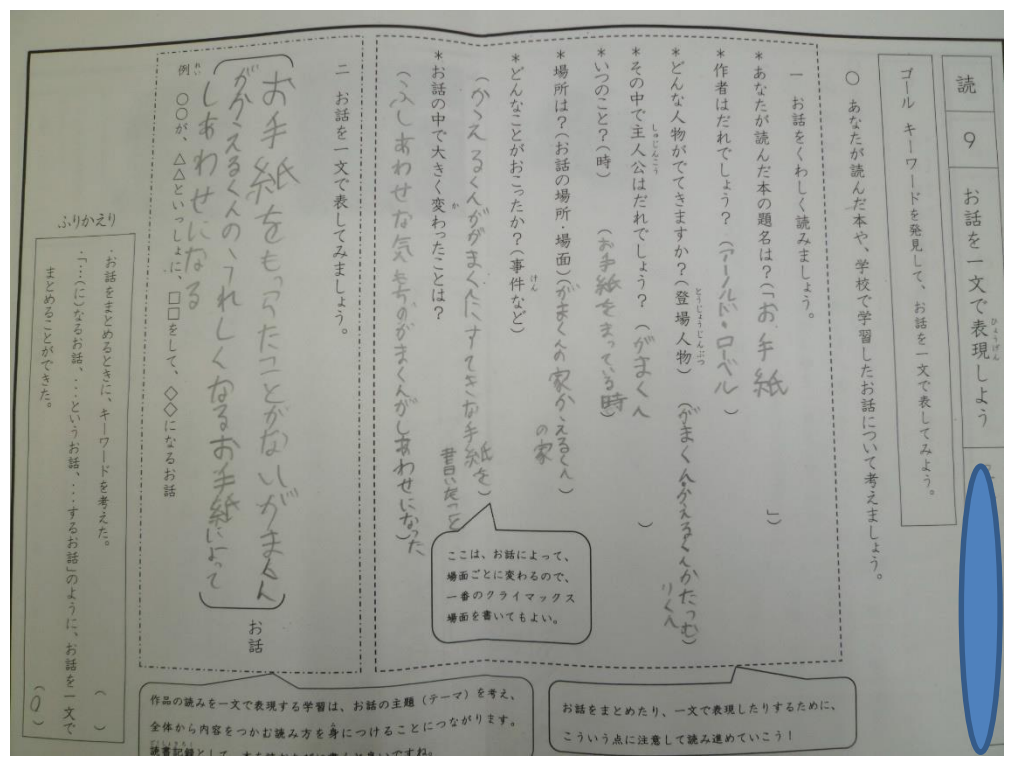 読 9 お話を一文で表現しよう
ゴール キーワードを発見して、お話を一文で表してみよう。
○ あなたが読んだ本や、学校で学習したお話について考えましょう。
一 お話をくわしく読みましょう。
*あなたが読んだ本の題名は?(「お手紙」)
*作者はだれでしょう?(アーノルド・ローベル)
*どんな人物がでてきますか?(登場人物)(がまくん・かえるくんかたつむりくん)
*その中で主人公はだれでしょう?(がまくん)
*いつのこと?(時)(お手紙をまっている時)
*場所は?(お話の場所・場面)(がまくんの家かえるくんの家)
*どんなことがおこったか?(事件など)
(かえるくんががまくんにすてきな手紙を書いたこと)
*お話の中で大きく変わったことは?
(ふしあわせな気もちのがまくんがしあわせになった)
ここは、お話によって、
場面ごとに変わるので、
一番のクライマックス
場面を書いてもよい。
二 お話を一文で表してみましょう。
お手紙をもらったことがないがまくん
がかえるくんのうれしくなるお手紙によって
しあわせになる
お話
例 ○○が、△△といっしょに、□□をして、◇◇になるお話
ふりかえり
・お話をまとめるときに、キーワードを考えた。( )
・「…(に)なるお話、…というお話、…するお話」のように、お話を一文で
まとめることができた。(○)
お話をまとめたり、一文で表現したりするために、
こういう点に注意して読み進めていこう!
作品の読みを一文で表現する学習は、お話の主題(テーマ)を考え、
全体から内容をつかむ読み方を身につけることにつながります。
読書記録として、